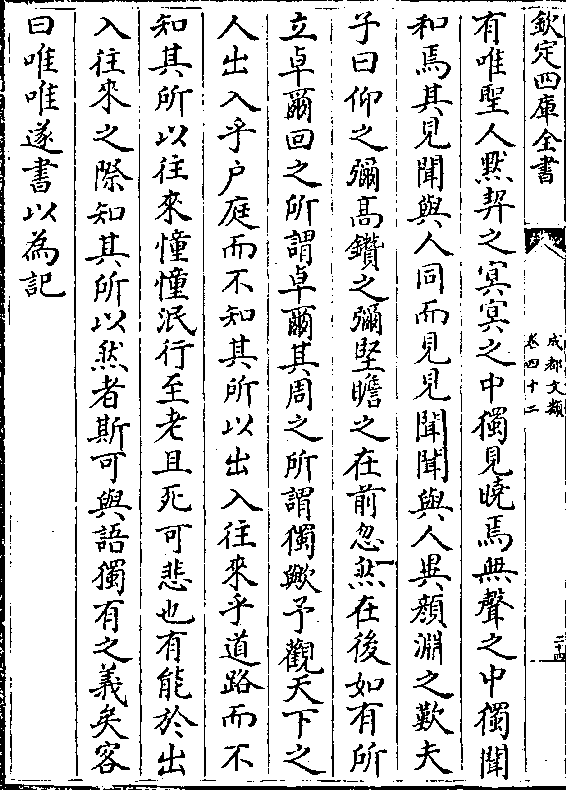 欽定四庫全書
成都文類
卷四十二
二十四
有唯聖人黙契之冥冥之中獨見曉焉無聲之中獨聞
和焉其見聞與人同而見見聞聞與人異顔淵之歎夫
子曰仰之彌髙鑽之彌堅瞻之在前忽然在後如有所
立卓爾回之所謂卓爾其周之所謂獨歟予觀天下之
人出入乎户庭而不知其所以出入往來乎道路而不
知其所以往來憧憧泯行至老且死可悲也有能於出
入往來之際知其所以然者斯可與語獨有之義矣客
曰唯唯遂書以為記